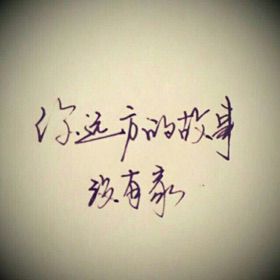 你远方的故事
没有家